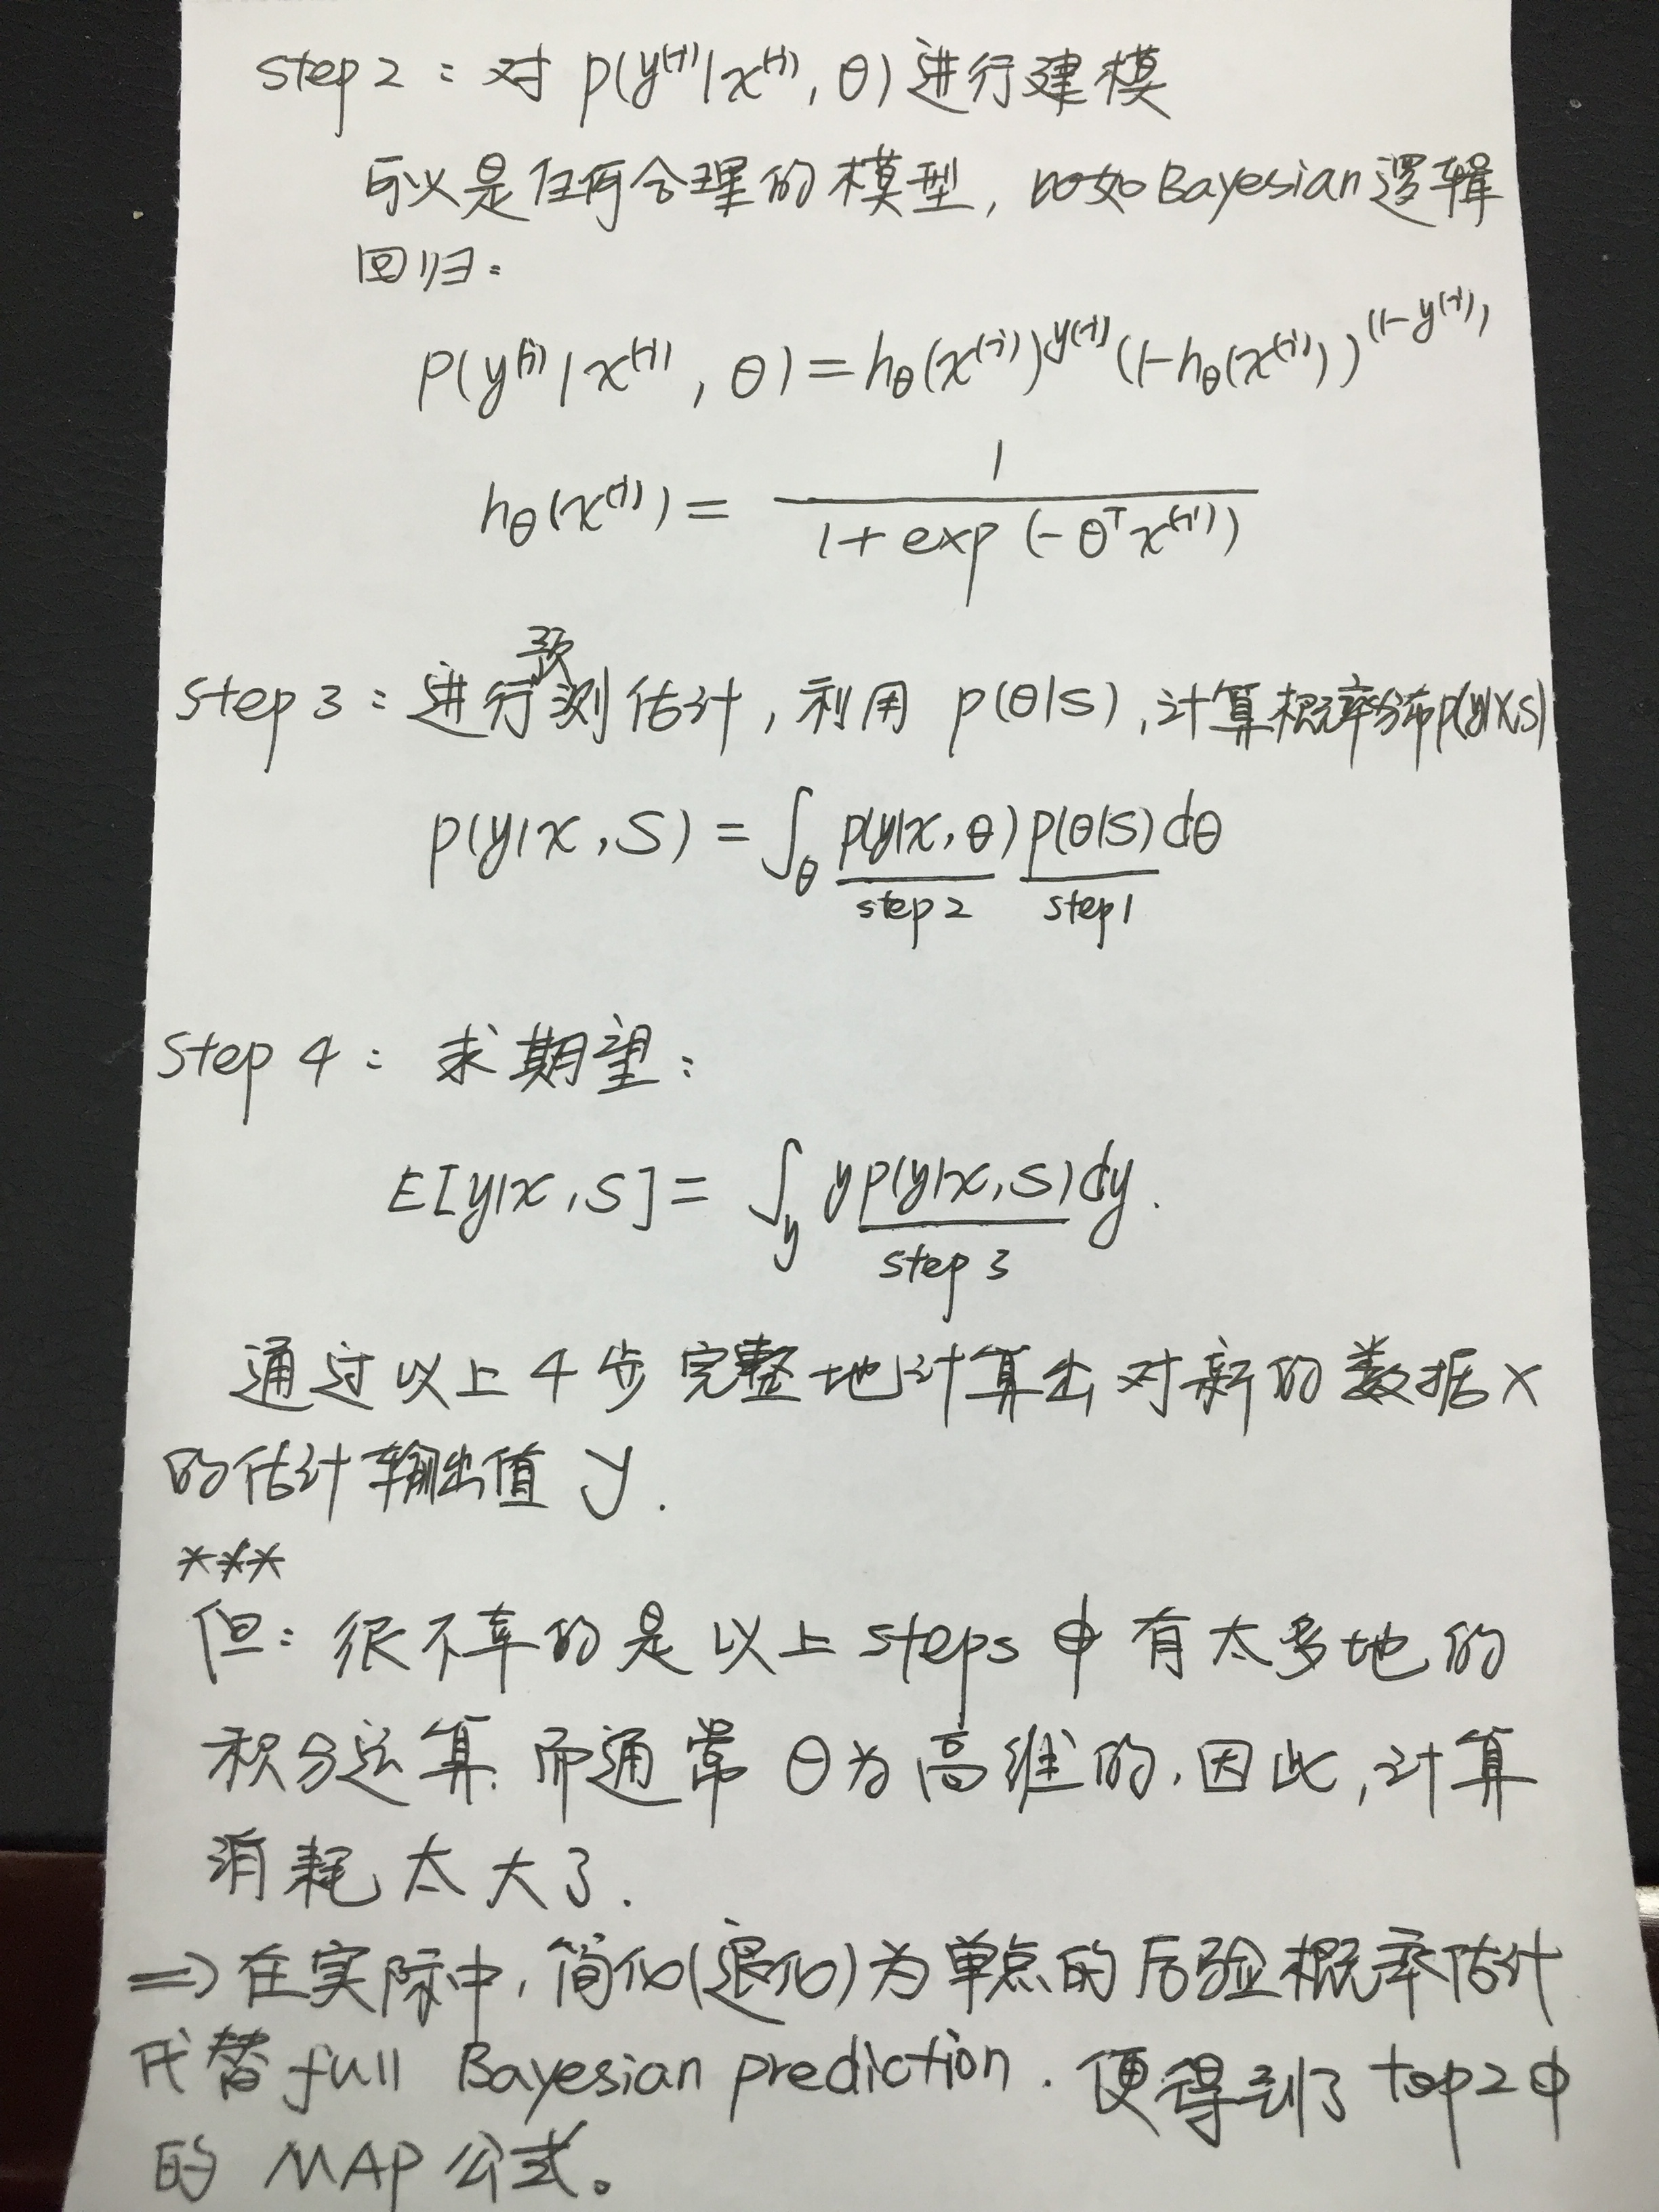 step 2：对 p(y⁽ⁱ⁾|x⁽ⁱ⁾, θ) 进行建模
可以是任何合理的模型, 比如Bayesian逻辑
回归：
P(y⁽ⁱ⁾|x⁽ⁱ⁾, θ) = h_θ(x⁽ⁱ⁾)^{y⁽ⁱ⁾} (1-h_θ(x⁽ⁱ⁾))^{(1-y⁽ⁱ⁾)}
h_θ(x⁽ⁱ⁾) = 1 / (1+exp(-θᵀx⁽ⁱ⁾))
step 3：进行预测估计, 利用 p(θ|S), 计算概率分布p(y|x,S)
p(y|x, S) = ∫_θ p(y|x, θ) p(θ|S) dθ
step 2 step 1
Step 4：求期望：
E[y|x, S] = ∫_y y p(y|x, S) dy.
step 3
通过以上 4 步 完整地计算出 对新的数据 x
的估计输出值 y.
***
但：很不幸的是以上 steps 中 有太多地的
积分运算, 而通常 θ为高维的, 因此, 计算
消耗太大了.
=> 在实际中, 简化(退化)为单点的后验概率估计
代替 full Bayesian prediction. 便得到了 top2 中
的 MAP 公式。